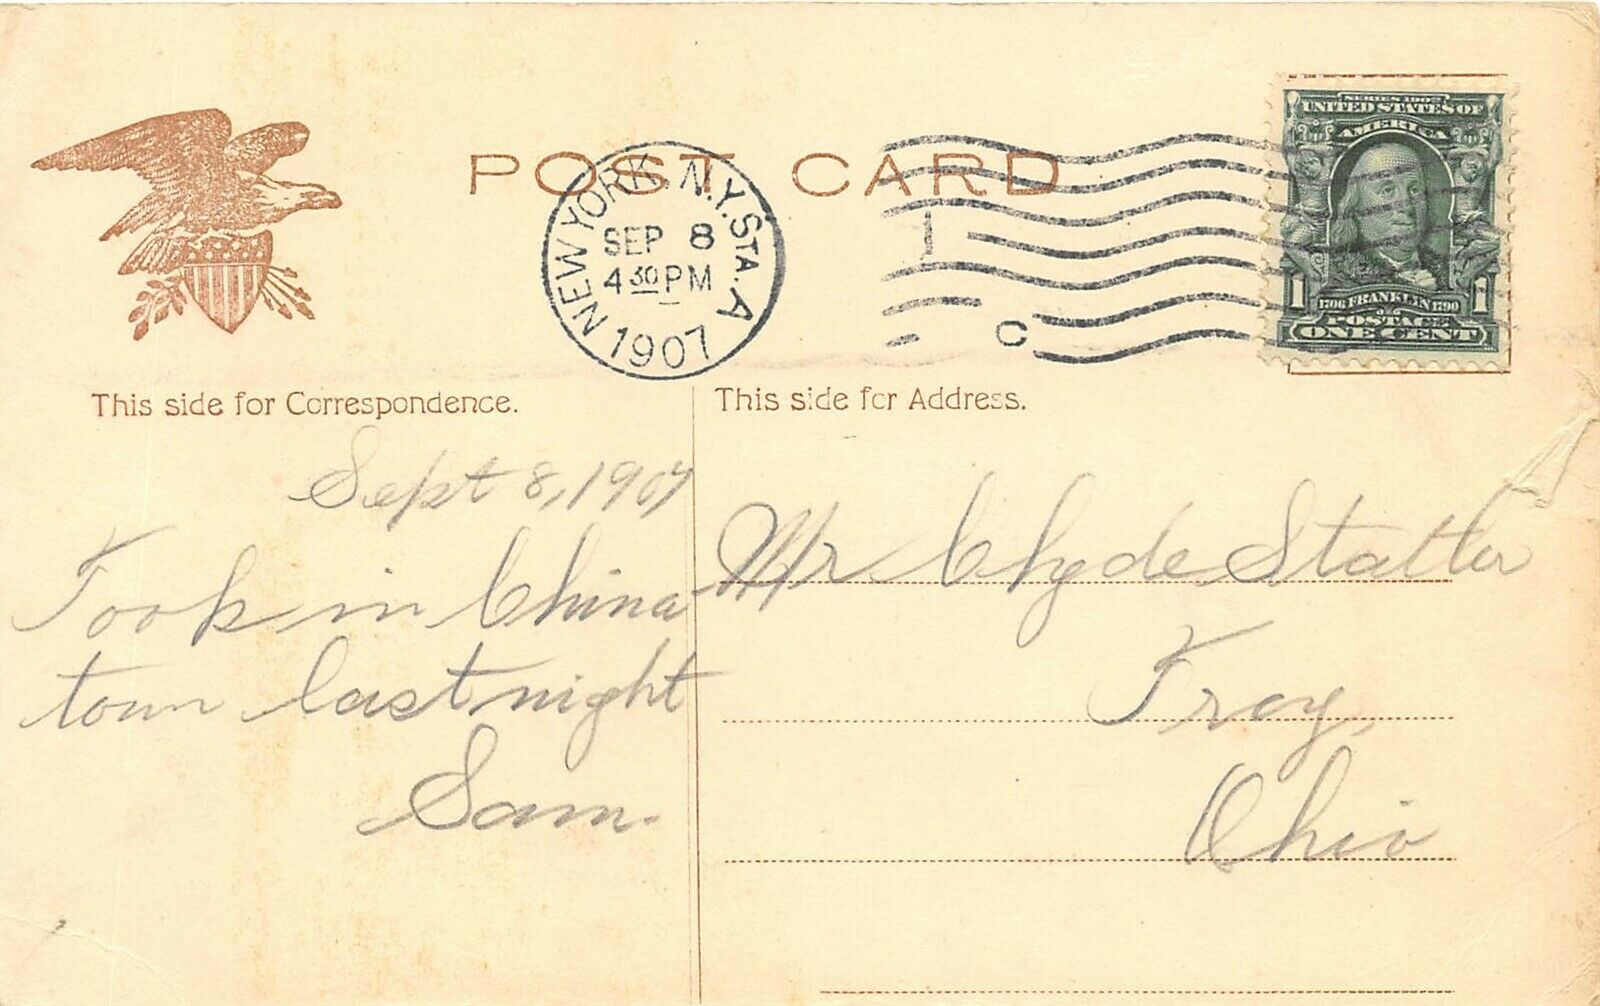 POST CARD
NEW YORK, N.Y. STA. A
SEP 8
4 30 PM
1907
1
C
SERIES 1902
UNITED STATES OF
AMERICA
1 1706 FRANKLIN 1790 1
POSTAGE
ONE CENT
This side for Correspondence.
Sept 8, 1907
Took in China
town last night
Sam.
This side for Address.
Mr Clyde Statler
Troy,
Ohio